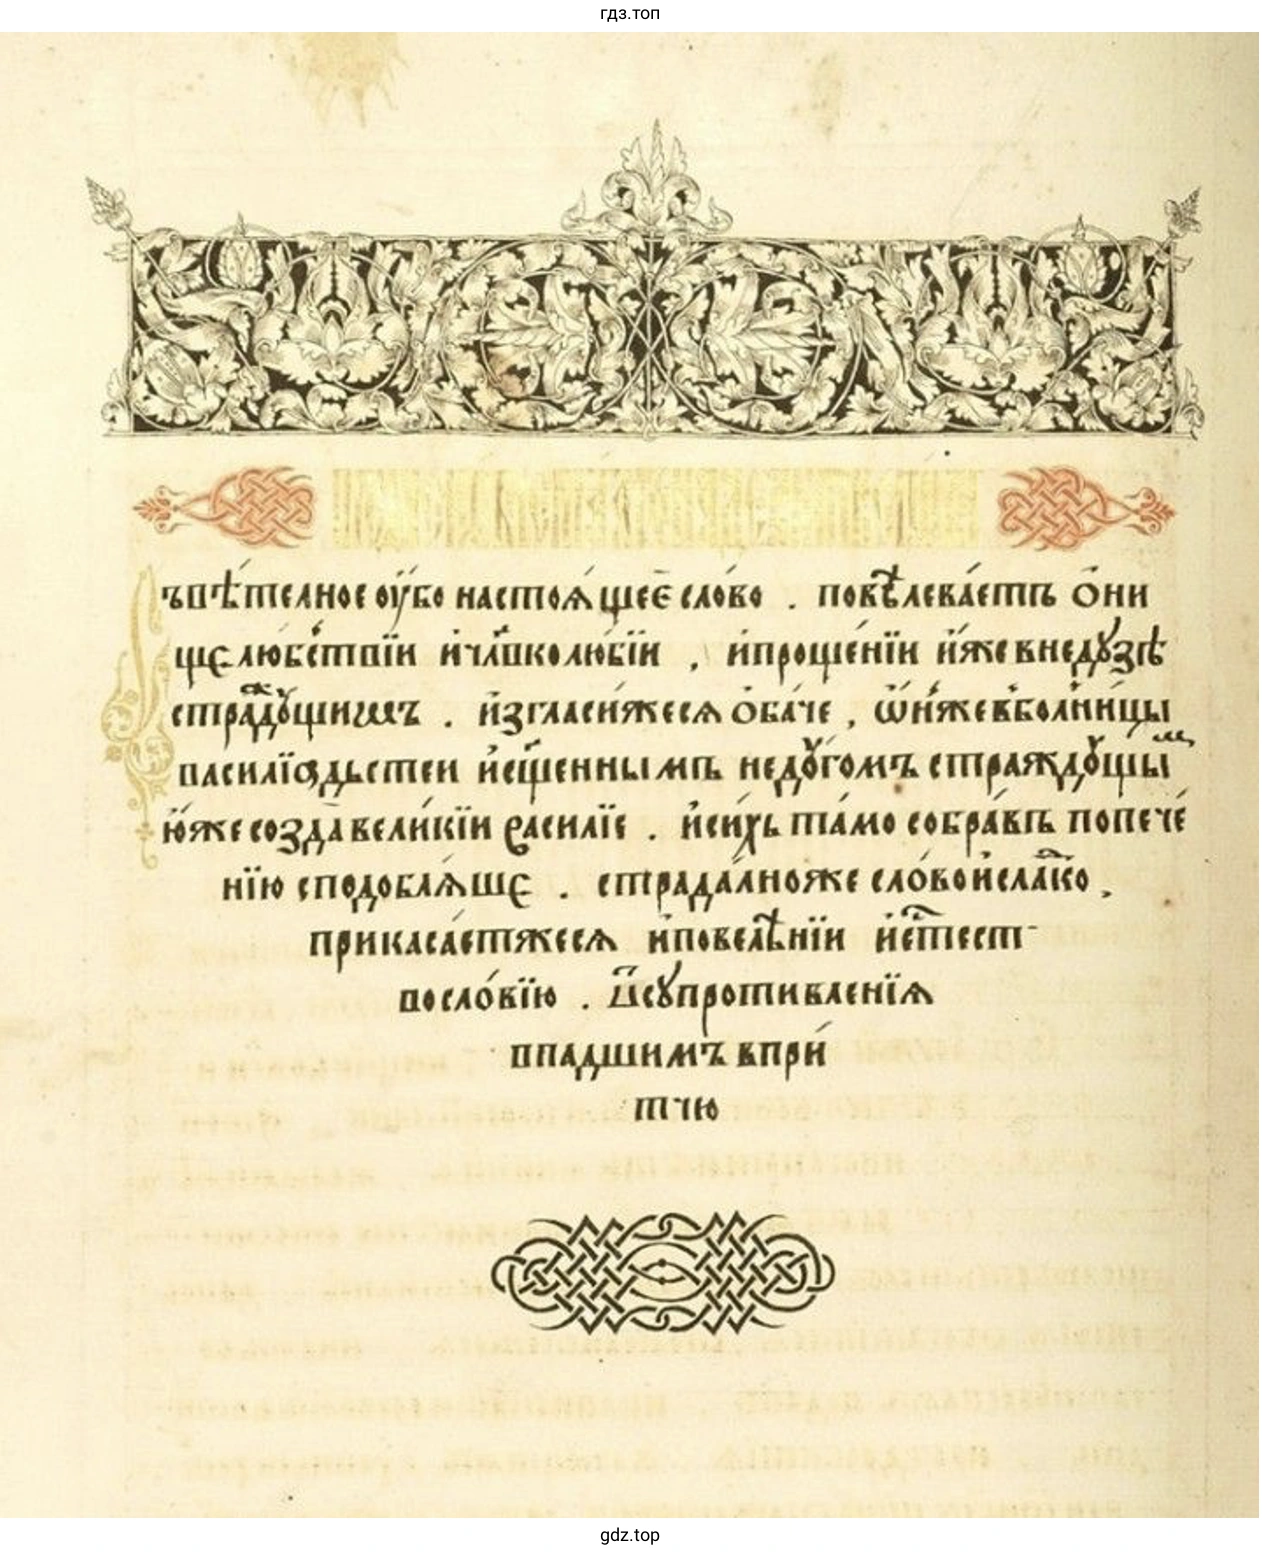 гдз.топ
ъвѣтелное оу҆бо настоѧ́щеє сло́во . повѣлева́етъ о҆ни
щелюбс́твїи и҆чл҃вколю́бїи , и҆проще́нїи и҆́жевнедꙋзѣ
стра́дꙋщимъ . и҆згласи́жесѧ ѻ҆ба́че , ѿи́жевболни́цы
василїѧдьстеи и҆сщ҃енны́мъ недꙋ́гомъ стражꙋдщы м
ю҆́же созда вели́кїи василїе . и҆си́хъ та́мо собра́въ попече́
нїю сподоблѧ́ше . страда́лноже сло́во и҆сла́дко ,
прикаса́етжесѧ и҆повелѣ́нїи и҆ест҃ест
восло́вїю . всꙋпротивленїѧ
впа́дшимъ впри́
тчю
gdz.top